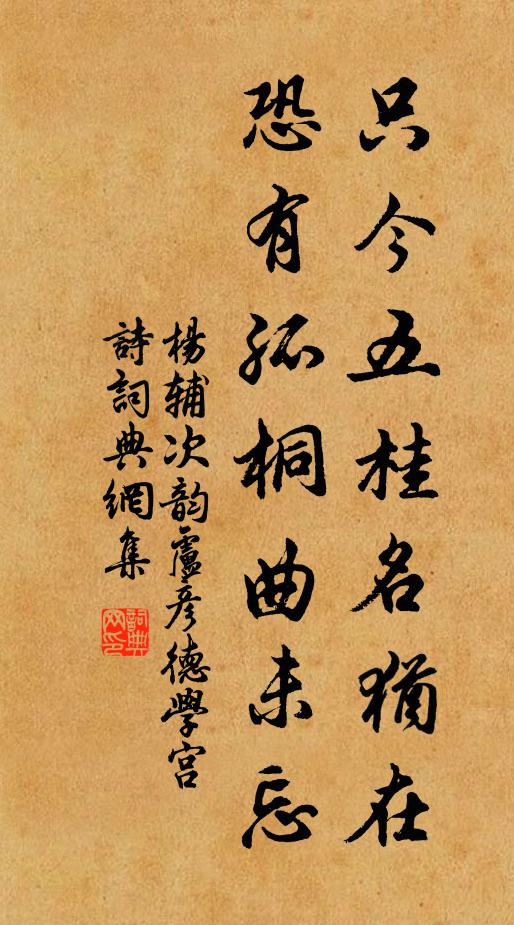 只今五桂名猶在
恐有孤桐曲未忘
楊輔次韵盧彥德學宮
詩詞典網集
詞典
网印